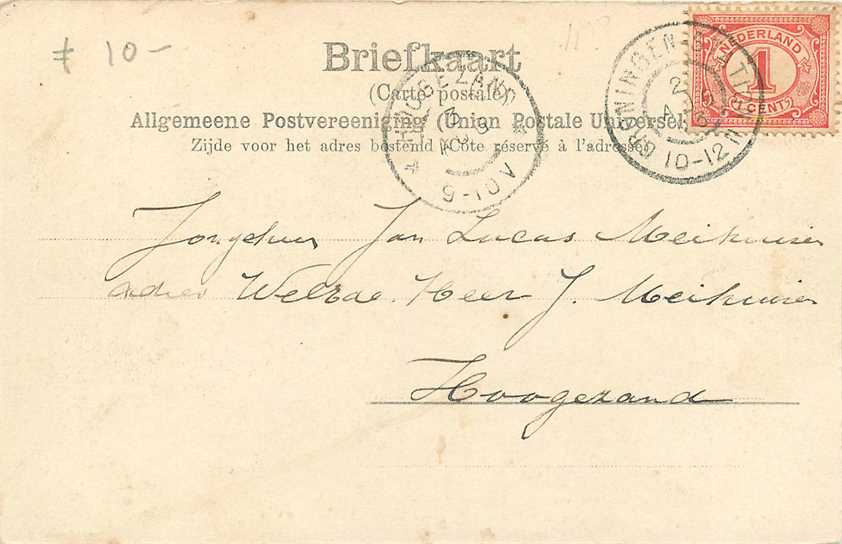 ƒ 10-
Briefkaart
(Carte postale)
Allgemeene Postvereeniging (Union Postale Universelle)
Zijde voor het adres bestemd Côté réservé à l'adresse
HOOGEZAND
9-10V
GRONINGEN
10-12N
NEDERLAND
1
1 CENT
Jongeheer Jan Lucas Meihuizen
adres Welede. Heer J. Meihuizen
Hoogezand